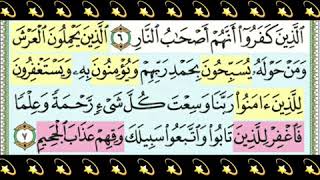 الَّذِينَ كَفَرُوٓا۟ أَنَّهُمْ أَصْحَٰبُ النَّارِ ٦ الَّذِينَ يَحْمِلُونَ الْعَرْشَ
وَمَنْ حَوْلَهُۥ يُسَبِّحُونَ بِحَمْدِ رَبِّهِمْ وَيُؤْمِنُونَ بِهِۦ وَيَسْتَغْفِرُونَ
لِلَّذِينَ ءَامَنُوا۟ رَبَّنَا وَسِعْتَ كُلَّ شَىْءٍ رَّحْمَةً وَعِلْمًا
فَاغْفِرْ لِلَّذِينَ تَابُوا۟ وَاتَّبَعُوا۟ سَبِيلَكَ وَقِهِمْ عَذَابَ الْجَحِيمِ ٧